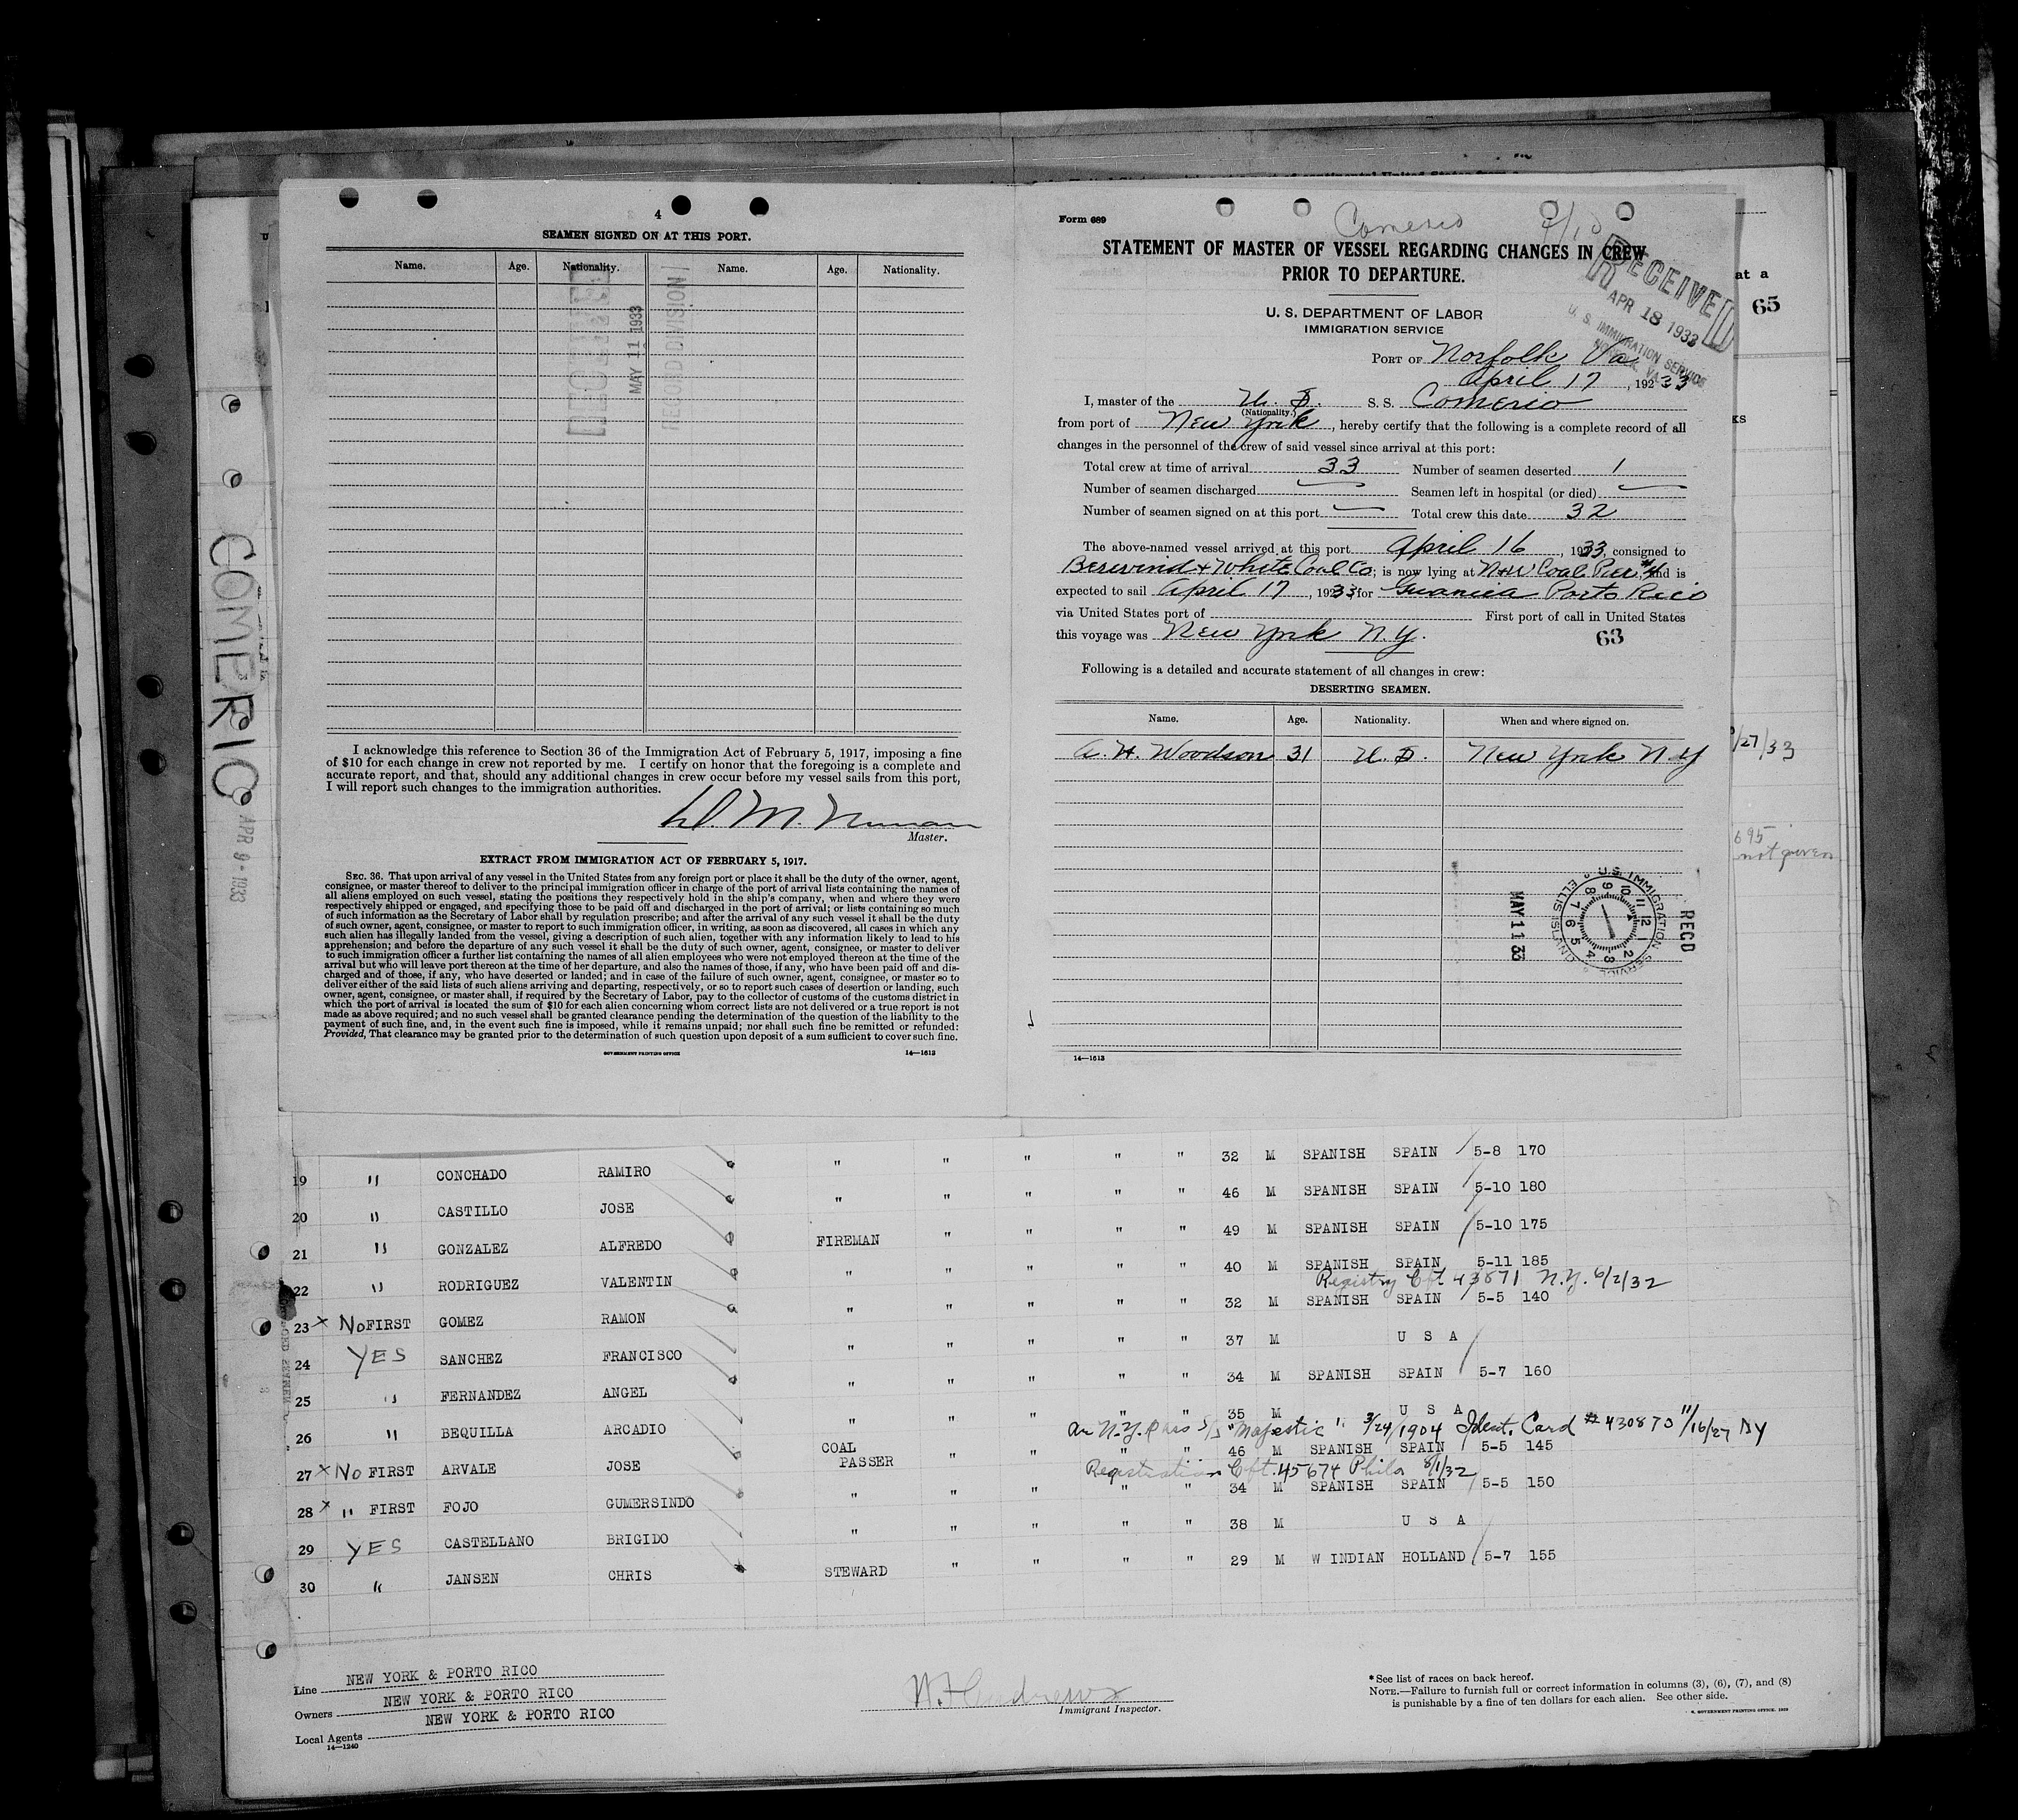 4
SEAMEN SIGNED ON AT THIS PORT.
Name. Age. Nationality. Name. Age. Nationality.
MAY 11 1933
RECORD DIVISION
I acknowledge this reference to Section 36 of the Immigration Act of February 5, 1917, imposing a fine
of $10 for each change in crew not reported by me. I certify on honor that the foregoing is a complete and
accurate report, and that, should any additional changes in crew occur before my vessel sails from this port,
I will report such changes to the immigration authorities.
Master.
EXTRACT FROM IMMIGRATION ACT OF FEBRUARY 5, 1917.
SEC. 36. That upon arrival of any vessel in the United States from any foreign port or place it shall be the duty of the owner, agent,
consignee, or master thereof to deliver to the principal immigration officer in charge of the port of arrival lists containing the names of
all aliens employed on such vessel, stating the positions they respectively hold in the ship's company, when and where they were
respectively shipped or engaged, and specifying those to be paid off and discharged in the port of arrival; or lists containing so much
of such information as the Secretary of Labor shall by regulation prescribe; and after the arrival of any such vessel it shall be the duty
of such owner, agent, consignee, or master to report to such immigration officer, in writing, as soon as discovered, all cases in which any
such alien has illegally landed from the vessel, giving a description of such alien, together with any information likely to lead to his
apprehension; and before the departure of any such vessel it shall be the duty of such owner, agent, consignee, or master to deliver
to such immigration officer a further list containing the names of all alien employees who were not employed thereon at the time of the
arrival but who will leave port thereon at the time of her departure, and also the names of those, if any, who have been paid off and dis-
charged and of those, if any, who have deserted or landed; and in case of the failure of such owner, agent, consignee, or master so to
deliver either of the said lists of such aliens arriving and departing, respectively, or so to report such cases of desertion or landing, such
owner, agent, consignee, or master shall, if required by the Secretary of Labor, pay to the collector of customs of the customs district in
which the port of arrival is located the sum of $10 for each alien concerning whom correct lists are not delivered or a true report is not
made as above required; and no such vessel shall be granted clearance pending the determination of the question of the liability to the
payment of such fine, and, in the event such fine is imposed, while it remains unpaid; nor shall such fine be remitted or refunded:
Provided, That clearance may be granted prior to the determination of such question upon deposit of a sum sufficient to cover such fine.
GOVERNMENT PRINTING OFFICE 14—1613
Form 689
Comerio
STATEMENT OF MASTER OF VESSEL REGARDING CHANGES IN CREW
PRIOR TO DEPARTURE.
RECEIVED
APR 18 1933
U. S. IMMIGRATION SERVICE
NORFOLK, VA.
U. S. DEPARTMENT OF LABOR
IMMIGRATION SERVICE
PORT OF Norfolk Va
April 17, 1933
I, master of the U. S. S. S. Comerio
(Nationality.)
from port of New York, hereby certify that the following is a complete record of all
changes in the personnel of the crew of said vessel since arrival at this port:
Total crew at time of arrival 33 Number of seamen deserted 1
Number of seamen discharged — Seamen left in hospital (or died) —
Number of seamen signed on at this port — Total crew this date 32
The above-named vessel arrived at this port April 16, 1933, consigned to
Berwind + White Coal Co; is now lying at N+W Coal Pier #4, and is
expected to sail April 17, 1933, for Guanica Porto Rico
via United States port of First port of call in United States
this voyage was New York N.Y.
63
Following is a detailed and accurate statement of all changes in crew:
DESERTING SEAMEN.
Name. Age. Nationality. When and where signed on.
A. H. Woodson 31 U. S. New York N.Y
U.S. IMMIGRATION SERVICE ELLIS ISLAND
RECD
MAY 11 33
14—1613
at a
65
/27/33
695
not given
COMERIO
APR 9 - 1933
19 " CONCHADO RAMIRO " " " " " 32 M SPANISH SPAIN 5-8 170
20 " CASTILLO JOSE " " " " " 46 M SPANISH SPAIN 5-10 180
21 " GONZALEZ ALFREDO FIREMAN " " " " 49 M SPANISH SPAIN 5-10 175
22 " RODRIGUEZ VALENTIN " " " " " 40 M SPANISH SPAIN 5-11 185
Registry Cft 43871 N.Y. 6/2/32
23 x No FIRST GOMEZ RAMON " " " " " 32 M SPANISH SPAIN 5-5 140
24 YES SANCHEZ FRANCISCO " " " " " 37 M U S A
25 " FERNANDEZ ANGEL " " " " " 34 M SPANISH SPAIN 5-7 160
26 " BEQUILLA ARCADIO " " " " " 35 M U S A
Ar N.Y. pass S/S "Majestic" 3/24/1904 Ident. Card #430873 11/16/27 NY
27 x No FIRST ARVALE JOSE COAL PASSER " " " " 46 M SPANISH SPAIN 5-5 145
Registration Cft. 45674 Phila 8/1/32
28 x " FIRST FOJO GUMERSINDO " " " " " 34 M SPANISH SPAIN 5-5 150
29 YES CASTELLANO BRIGIDO " " " " " 38 M U S A
30 " JANSEN CHRIS STEWARD " " " " 29 M W INDIAN HOLLAND 5-7 155
Line NEW YORK & PORTO RICO
Owners NEW YORK & PORTO RICO
Local Agents NEW YORK & PORTO RICO
14—1240
W. F. Andrews
Immigrant Inspector.
* See list of races on back hereof.
NOTE.—Failure to furnish full or correct information in columns (3), (6), (7), and (8)
is punishable by a fine of ten dollars for each alien. See other side.
GOVERNMENT PRINTING OFFICE. 1929